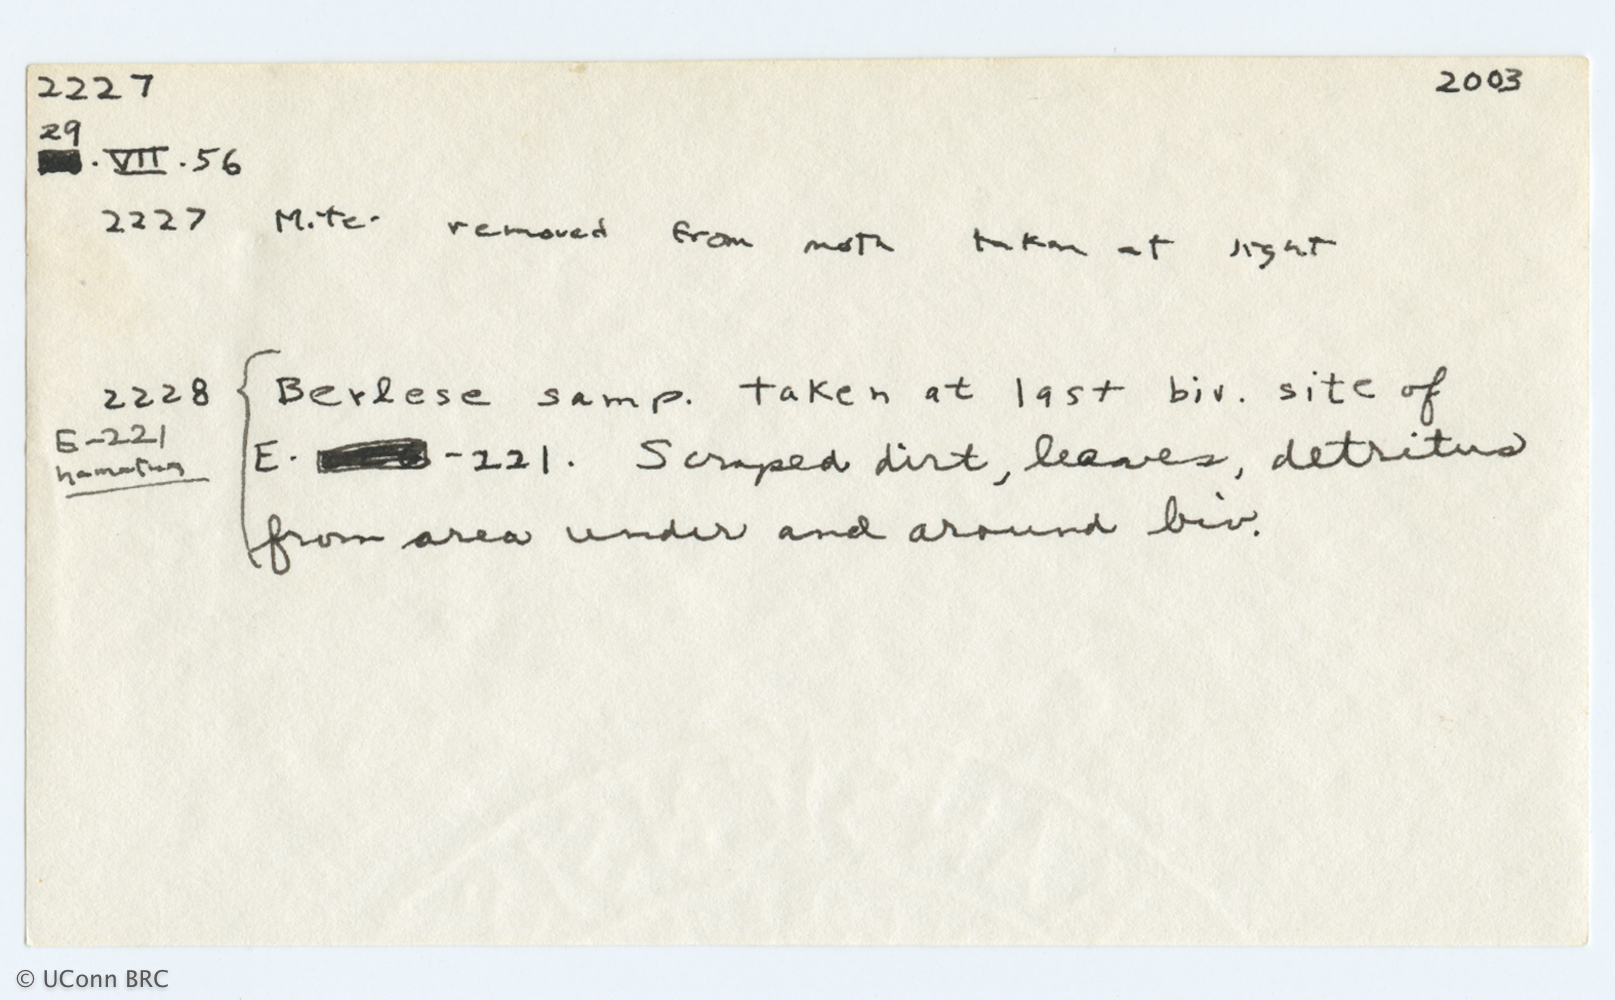 2227 2003
29
.VII.56
2227 Mite removed from moth taken at light
2228 { Berlese samp. taken at last biv. site of
E-221 E. -221. Scraped dirt, leaves, detritus
hamatum
from area under and around biv.
© UConn BRC